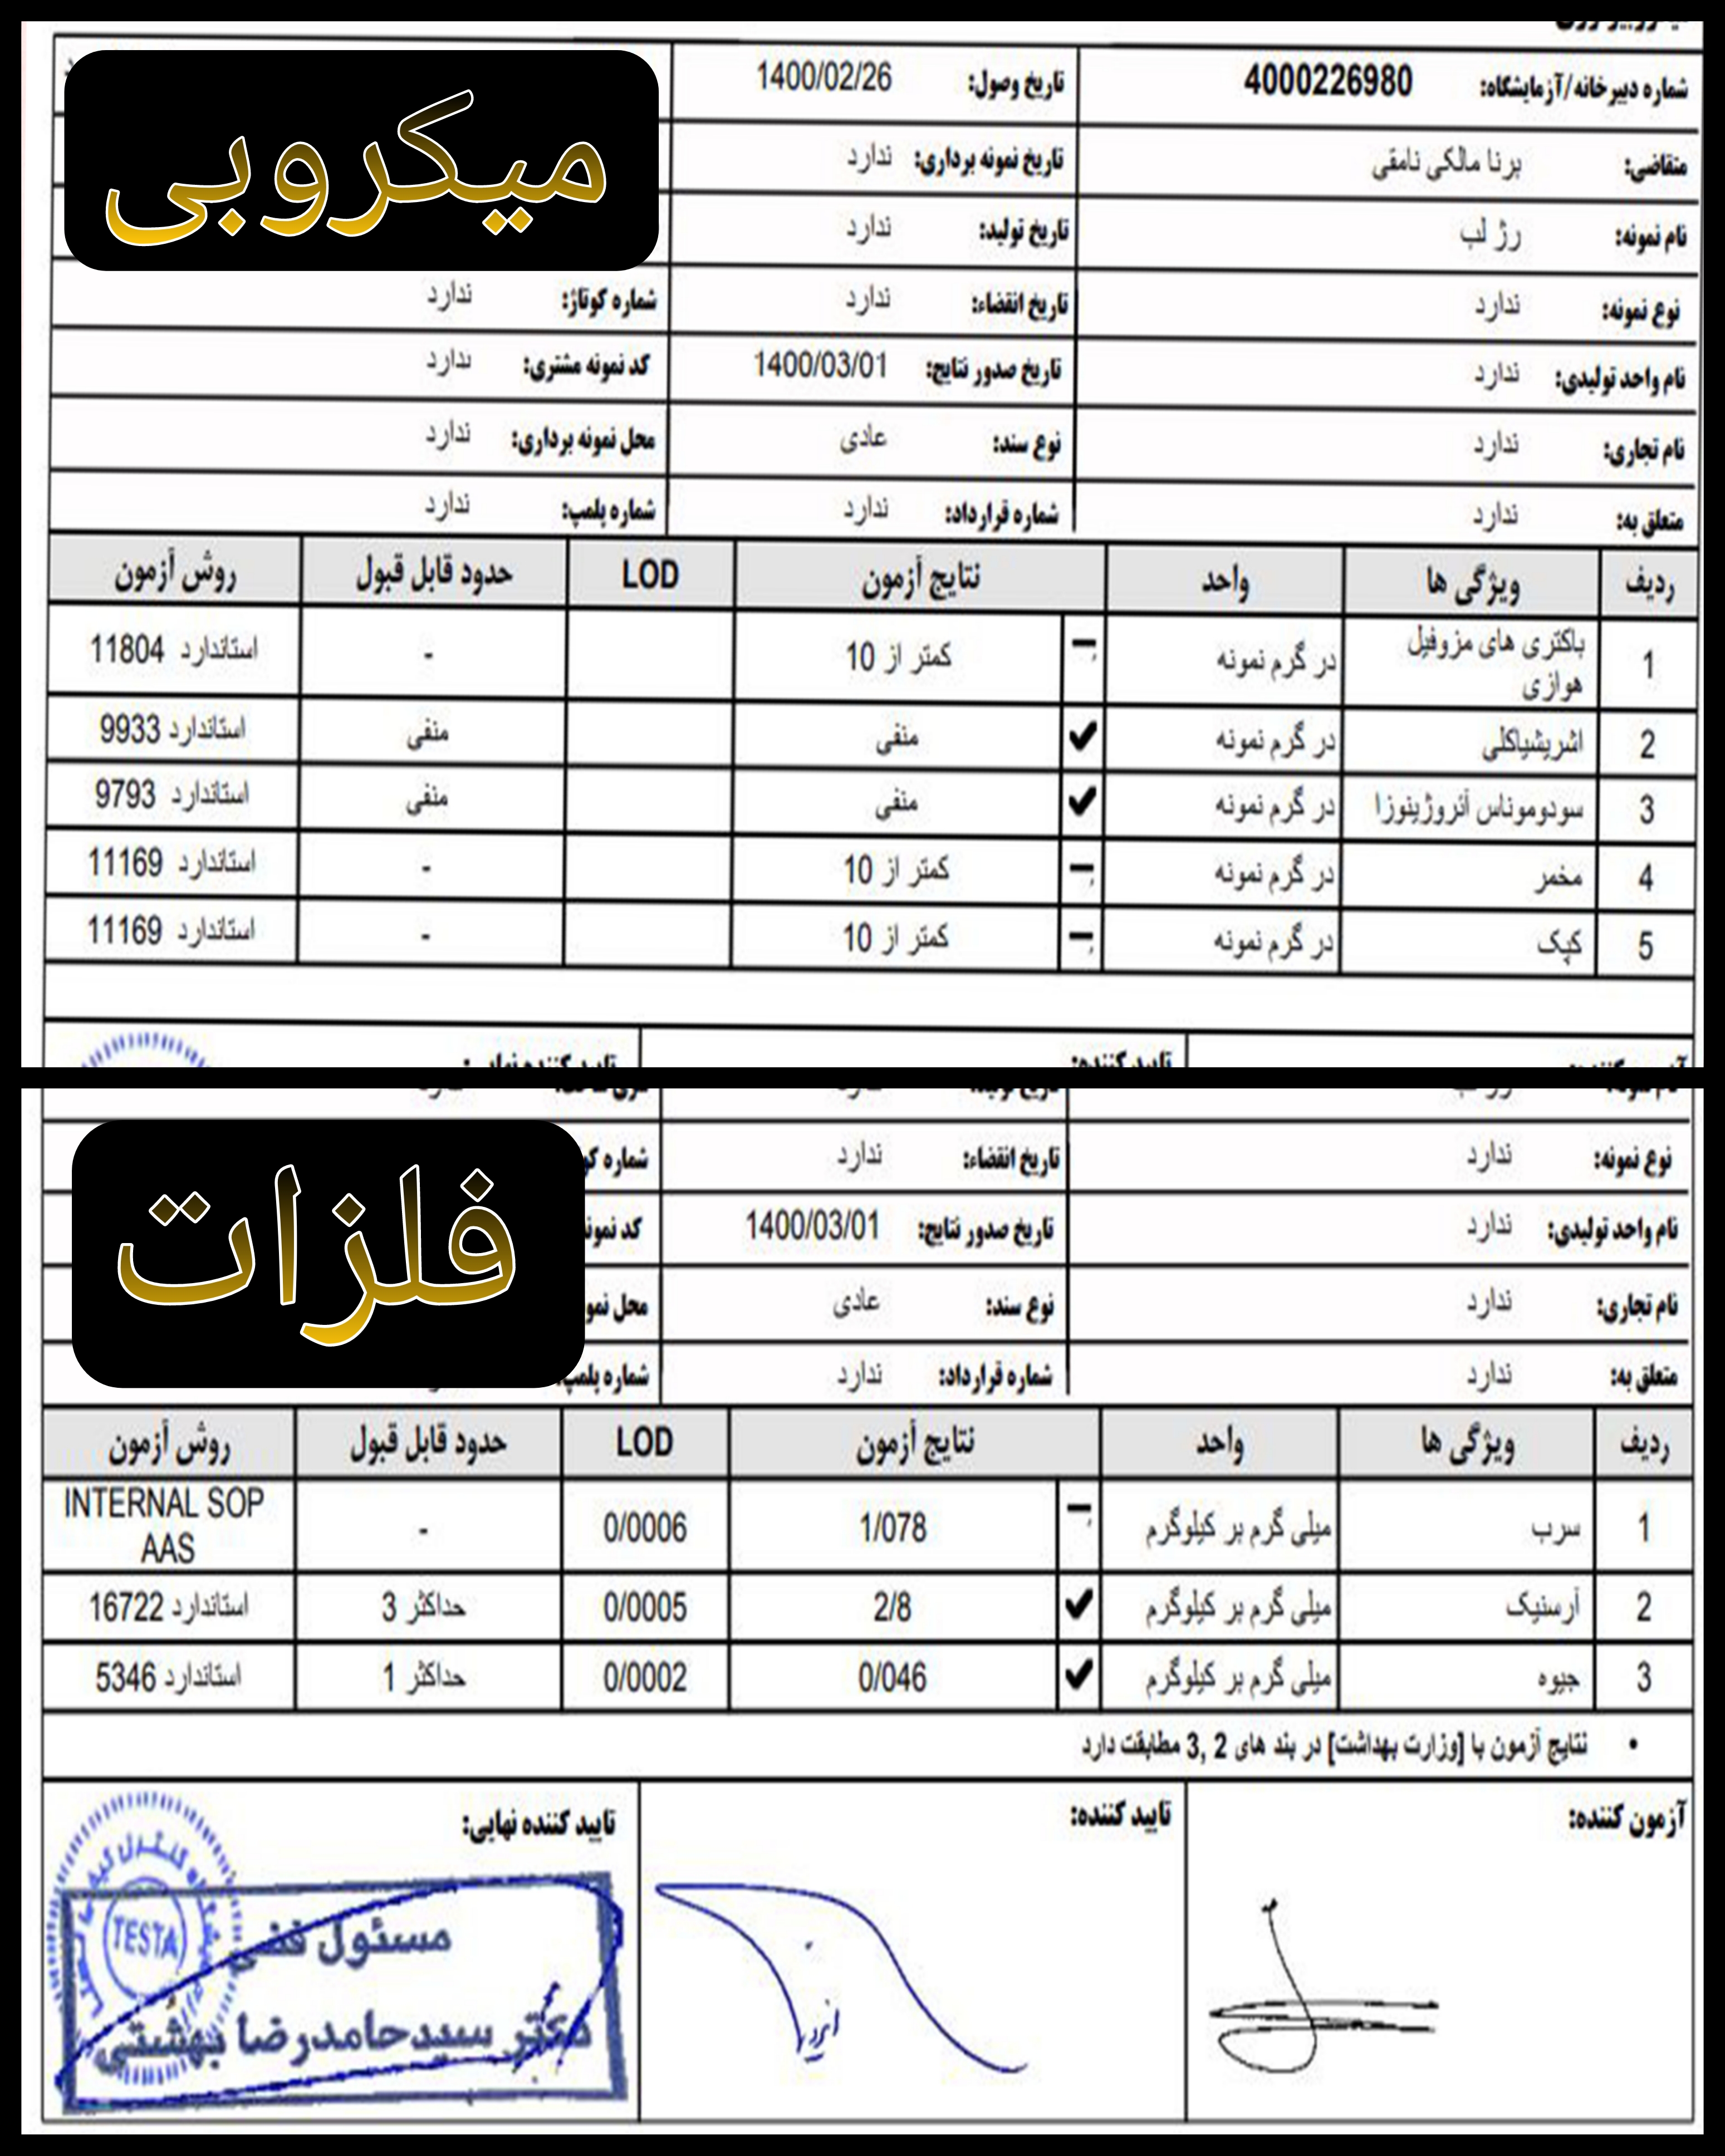 میکروبی
شماره دبیرخانه/آزمایشگاه: 4000226980 تاریخ وصول: 1400/02/26
متقاضی: برنا مالکی نامقی تاریخ نمونه برداری: ندارد
نام نمونه: رژ لب تاریخ تولید: ندارد
نوع نمونه: ندارد تاریخ انقضاء: ندارد شماره کوتاژ: ندارد
نام واحد تولیدی: ندارد تاریخ صدور نتایج: 1400/03/01 کد نمونه مشتری: ندارد
نام تجاری: ندارد نوع سند: عادی محل نمونه برداری: ندارد
متعلق به: ندارد شماره قرارداد: ندارد شماره پلمپ: ندارد
ردیف ویژگی ها واحد نتایج آزمون LOD حدود قابل قبول روش آزمون
1 باکتری های مزوفیل هوازی در گرم نمونه کمتر از 10 - استاندارد 11804
2 اشریشیاکلی در گرم نمونه ✔ منفی منفی استاندارد 9933
3 سودوموناس آئروژینوزا در گرم نمونه ✔ منفی منفی استاندارد 9793
4 مخمر در گرم نمونه کمتر از 10 - استاندارد 11169
5 کپک در گرم نمونه کمتر از 10 - استاندارد 11169
تایید کننده: تایید کننده نهایی:
فلزات
نوع نمونه: ندارد تاریخ انقضاء: ندارد شماره
نام واحد تولیدی: ندارد تاریخ صدور نتایج: 1400/03/01 کد
نام تجاری: ندارد نوع سند: عادی محل
متعلق به: ندارد شماره قرارداد: ندارد شماره پلمپ:
ردیف ویژگی ها واحد نتایج آزمون LOD حدود قابل قبول روش آزمون
1 سرب میلی گرم بر کیلوگرم 1/078 0/0006 - INTERNAL SOP AAS
2 آرسنیک میلی گرم بر کیلوگرم ✔ 2/8 0/0005 حداکثر 3 استاندارد 16722
3 جیوه میلی گرم بر کیلوگرم ✔ 0/046 0/0002 حداکثر 1 استاندارد 5346
• نتایج آزمون با [وزارت بهداشت] در بند های 2 ,3 مطابقت دارد
آزمون کننده: تایید کننده: تایید کننده نهایی:
TESTA
مسئول فنی
دکتر سیدحامدرضا بهشتی